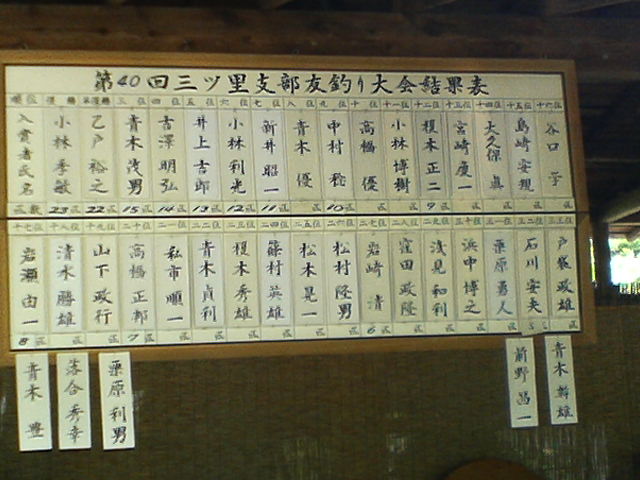 第40回三ツ里支部友釣り大会結果表
順位 優勝 準優勝 三位 四位 五位 六位 七位 八位 九位 十位 十一位 十二位 十三位 十四位 十五位 十六位
入賞者氏名 小林季敏 乙戸裕之 青木茂男 吉澤明弘 井上吉郎 小林利光 新井昭一 青木優 中村稔 高橋優 小林博樹 榎本正二 宮崎慶一 大久保真 島崎安規 谷口学
匹数 23匹 22匹 15匹 14匹 13匹 12匹 11匹 匹 10匹 匹 匹 9匹 匹 匹 匹 匹
十七位 十八位 十九位 二十位 二一位 二二位 二三位 二四位 二五位 二六位 二七位 二八位 二九位 三十位 三一位 三二位 三三位
岩瀬由一 清水勝雄 山下政行 高橋正郎 私市順一 青木貞利 榎本秀雄 篠村英雄 松本晃一 松村隆男 岩崎清 窪田政隆 浅見和利 浜中博之 栗原勇人 石川安夫 戸襄政雄
8匹 匹 匹 7匹 匹 匹 匹 匹 匹 匹 6匹 匹 匹 匹 匹 5匹 匹
青木豊
落合秀幸
栗原利男
前野昌一
青木幹雄